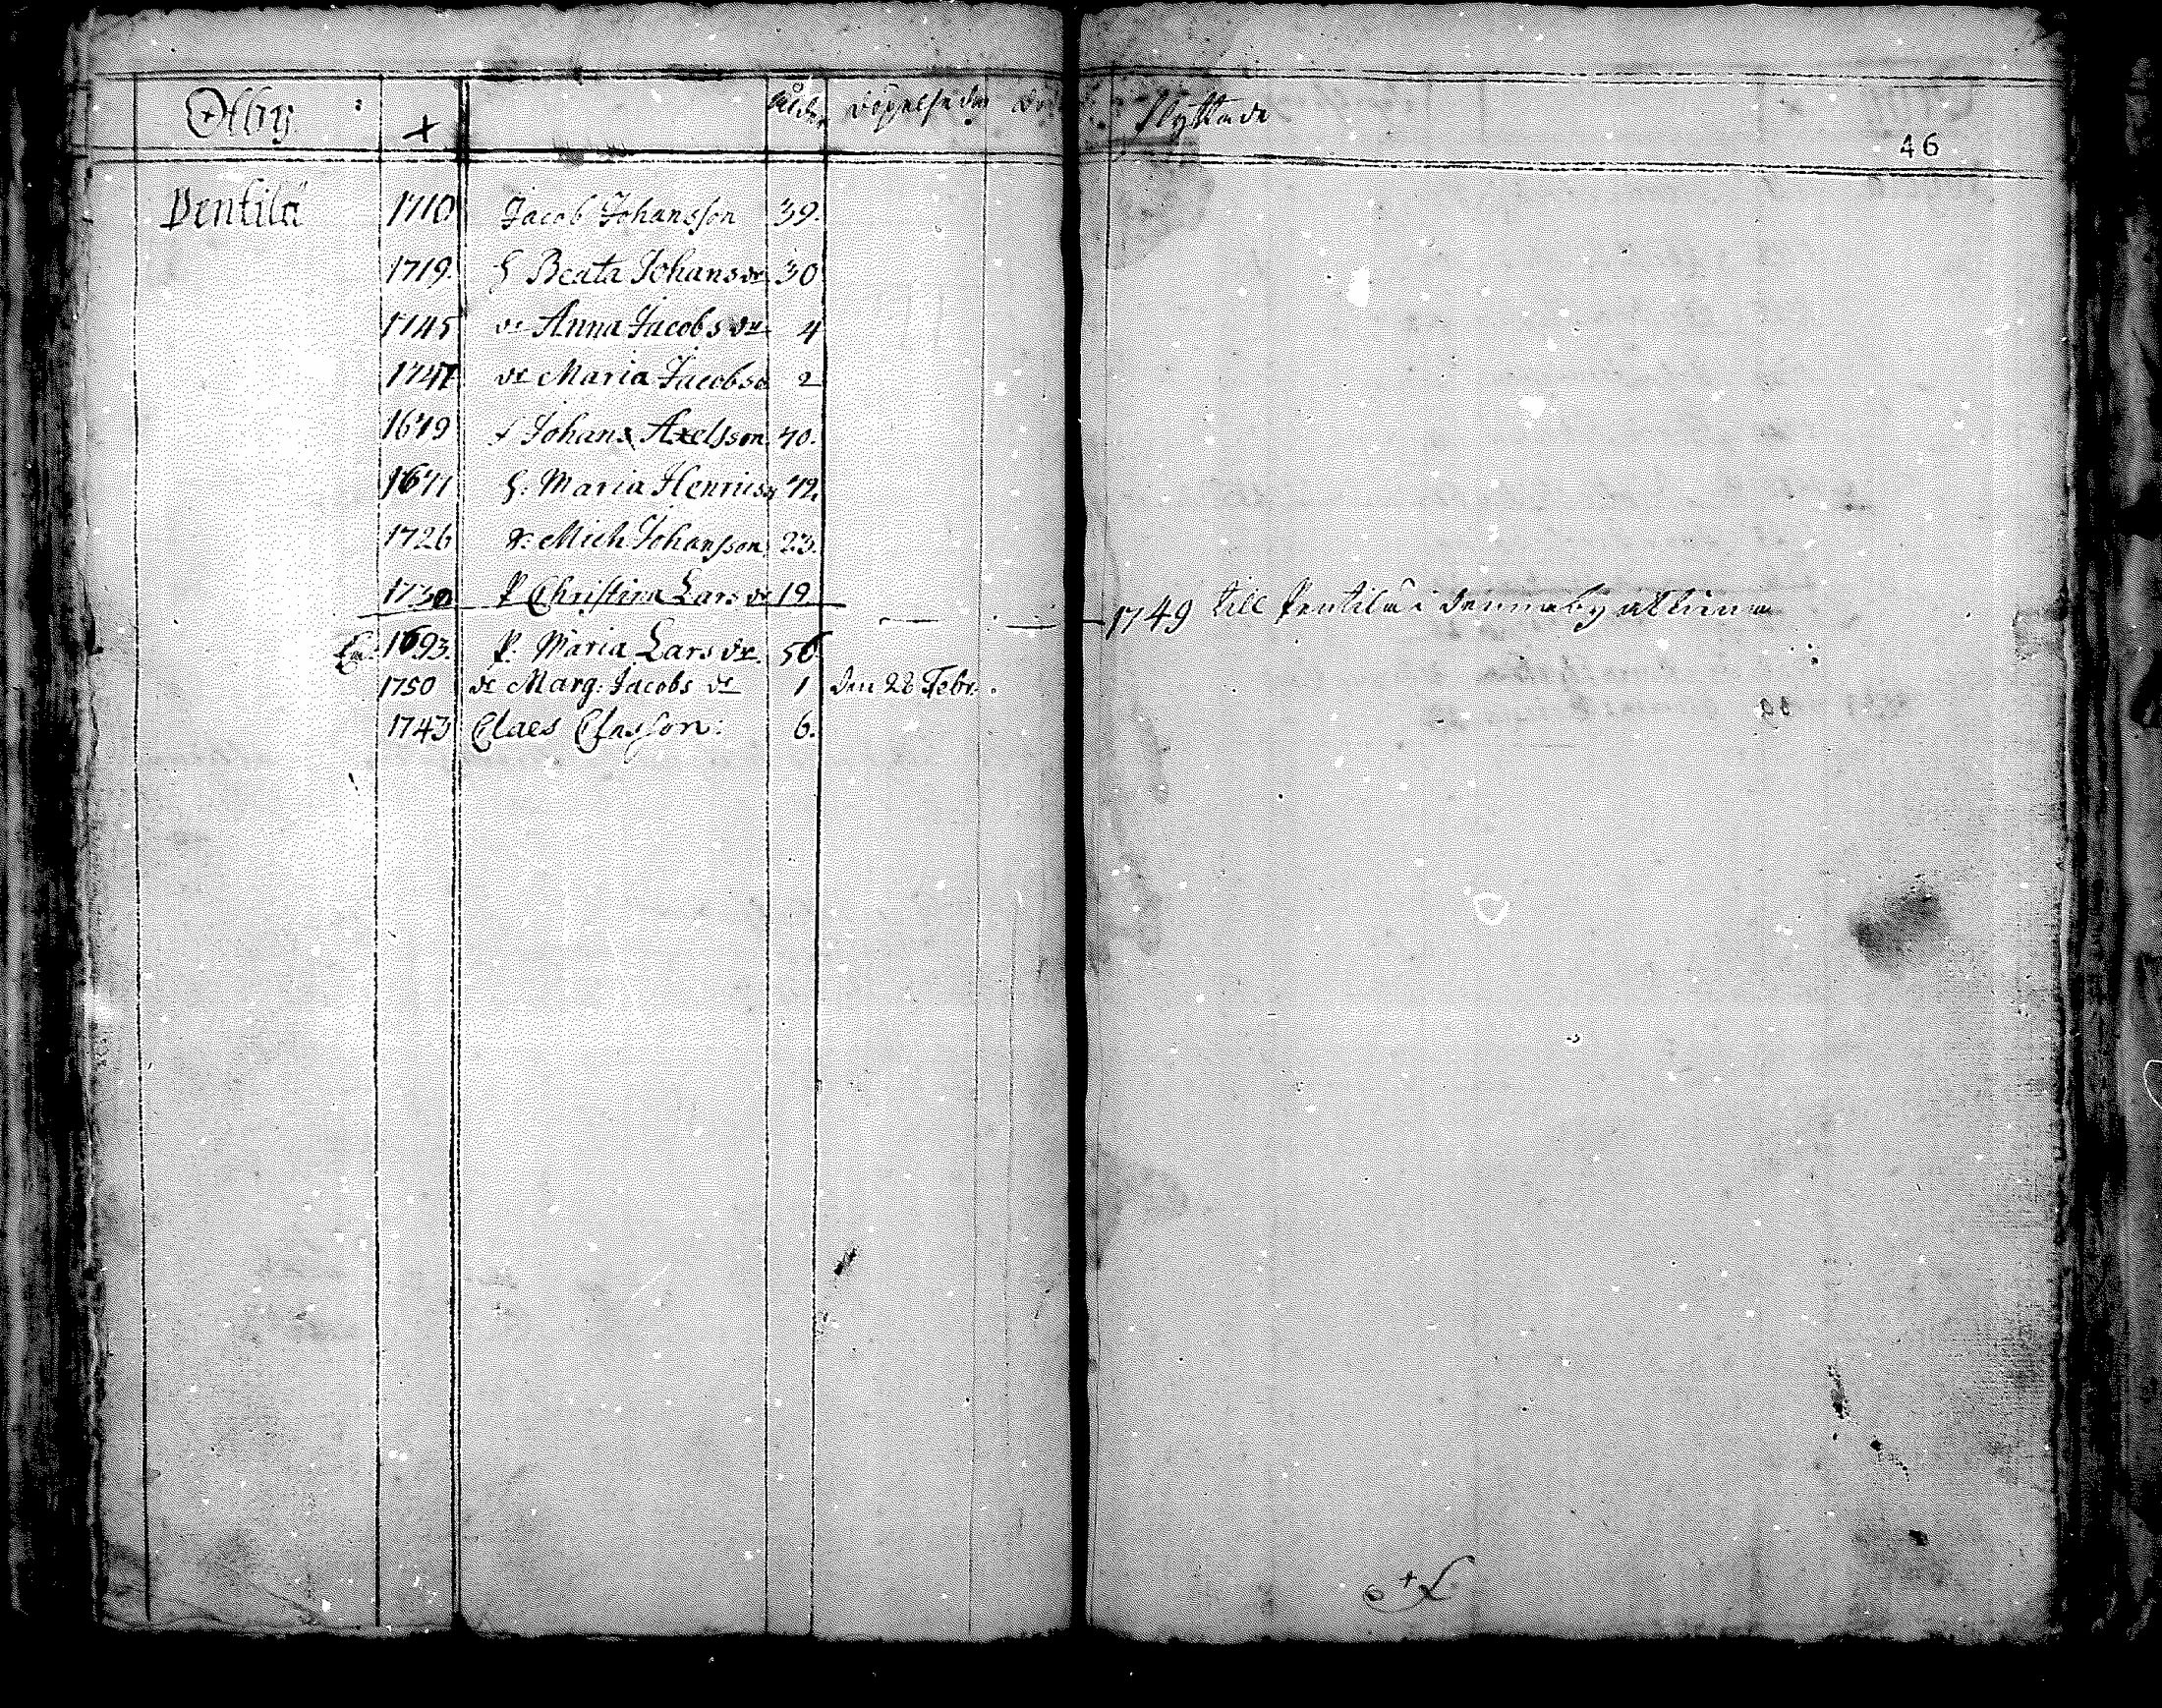 Ölby : + Ålder Döpelse dag Flyttade
46
Pentilä 1710 Jacob Johansson 39.
1719. H Beata Johans dr 30
1745 dr Anna Jacobs dr 4
1747 dr Maria Jacobs d 2
1679 f Johan Axelsson 70.
1677 H. Maria Henrics 72.
1726 Mich Johansson 23.
1730 P Christina Lars dr 19 1749 till Pentilä i
1693. P. Maria Lars dr. 56
1750 dr Marg: Jacobs dr 1 den 28 Febr.
1743 Claes Classon: 6.